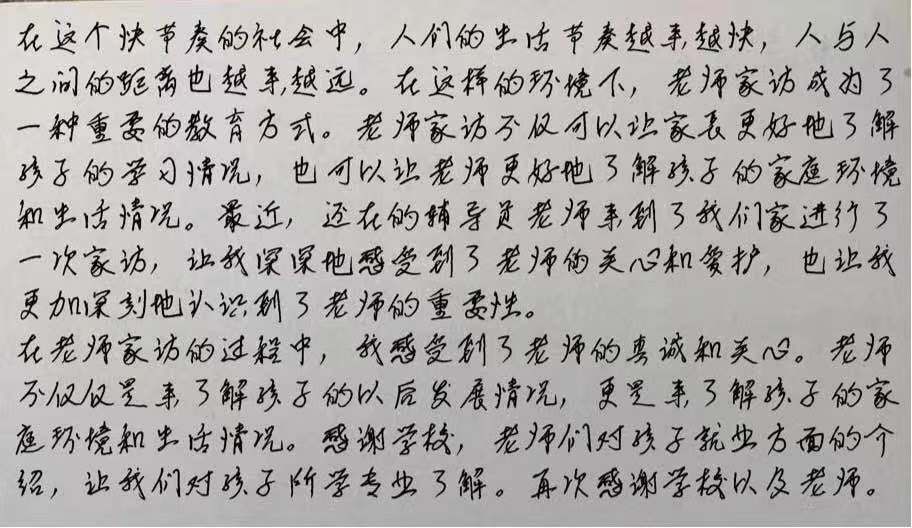 在这个快节奏的社会中，人们的生活节奏越来越快，人与人
之间的距离也越来越远。在这样的环境下，老师家访成为了
一种重要的教育方式。老师家访不仅可以让家长更好地了解
孩子的学习情况，也可以让老师更好地了解孩子的家庭环境
和生活情况。最近，还在的辅导员老师来到了我们家进行了
一次家访，让我深深地感受到了老师的关心和爱护，也让我
更加深刻地认识到了老师的重要性。
在老师家访的过程中，我感受到了老师的真诚和关心。老师
不仅仅是来了解孩子的以后发展情况，更是来了解孩子的家
庭环境和生活情况。感谢学校，老师们对孩子就业方面的介
绍，让我们对孩子所学专业了解。再次感谢学校以及老师。